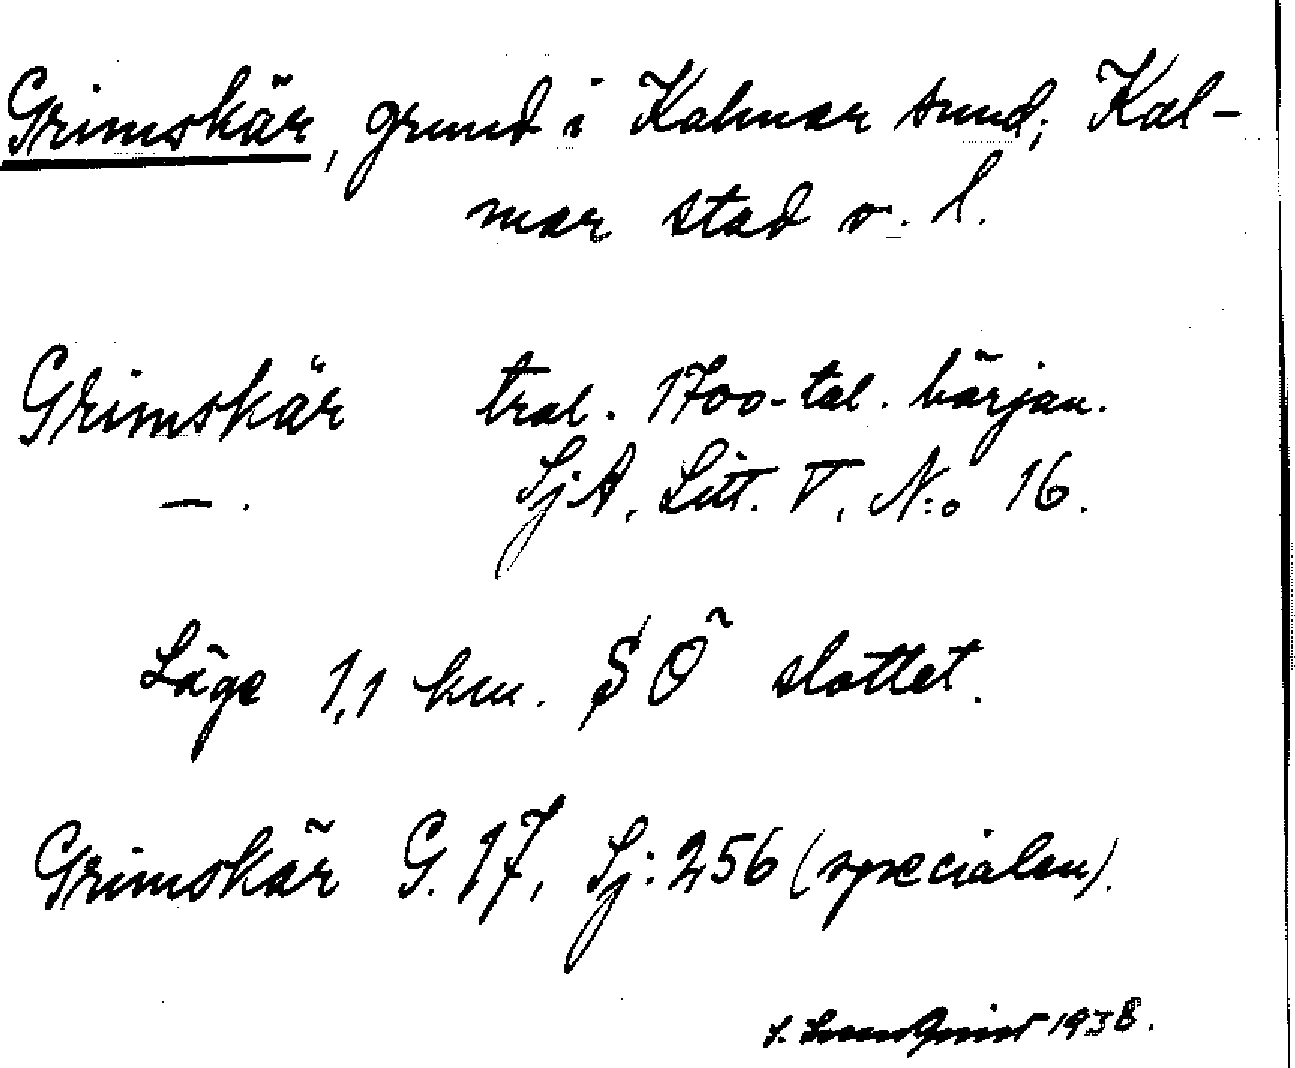 Grimskär, grund i Kalmar sund; Kal-
mar stad o. l.
Grimskär tral. 1700-tal. början.
— . SjA. Litt. V. N:o 16.
Läge 1,1 km. SÖ slottet.
Grimskär G. 17, Sj:256 (specialen).
1938.